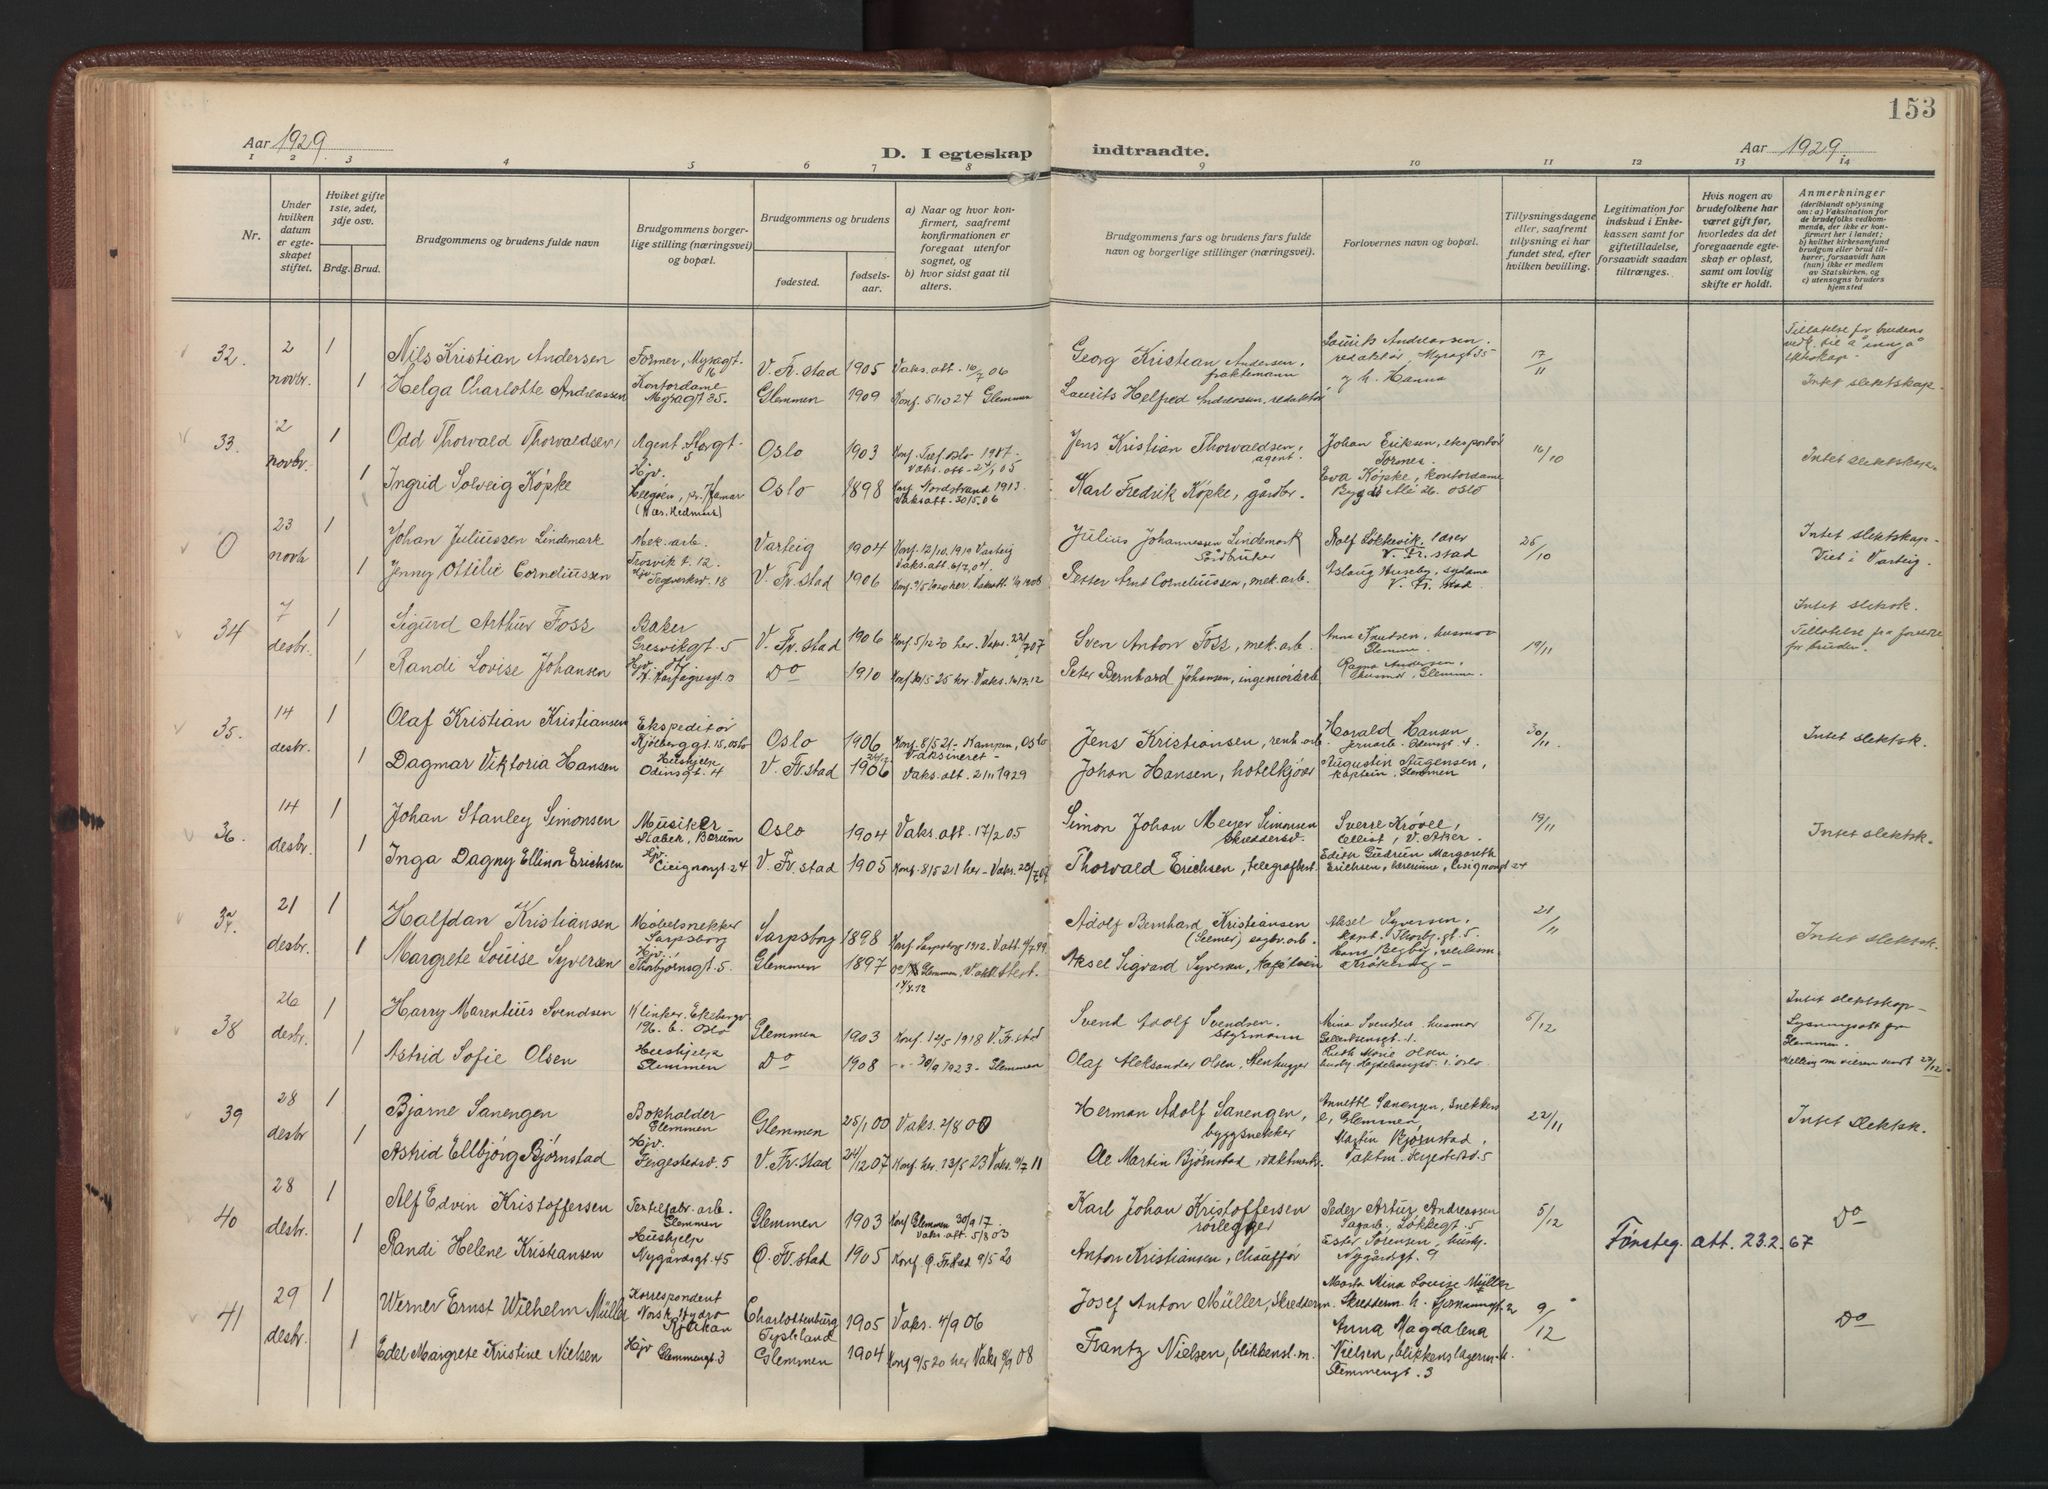 153
Aar 1929
D. I egteskap indtraadte.
Aar 1929
1 2 3 4 5 6 7 8 9 10 11 12 13 14
Nr.
Under hvilken datum er egteskapet stiftet.
Hvilket gifte 1ste, 2det, 3dje osv.
Brdg. Brud.
Brudgommens og brudens fulde navn
Brudgommens borgerlige stilling (næringsvei) og bopæl.
Brudgommens og brudens
fødested.
fødselsaar.
a) Naar og hvor konfirmert, saafremt konfirmationen er foregaat utenfor sognet, og
b) hvor sidst gaat til alters.
Brudgommens fars og brudens fars fulde navn og borgerlige stillinger (næringsvei).
Forlovernes navn og bopæl.
Tillysningsdagene eller, saafremt tillysning ei har fundet sted, efter hvilken bevilling.
Legitimation for indskud i Enkekassen samt for giftetilladelse, forsaavidt saadan tiltrænges.
Hvis nogen av brudefolkene har været gift før, hvorledes da det foregaaende egteskap er opløst, samt om lovlig skifte er holdt.
Anmerkninger (deriblandt oplysning om: a) Vaksination for de brudefolks vedkommende, der ikke er konfirmert her i landet; b) hvilket kirkesamfund brudgom eller brud tilhører, forsaavidt han (hun) ikke er medlem av Statskirken, og c) utensogns bruders hjemsted
32. 2 novbr. 1 Nils Kristian Andersen Former, Myragt. 16 V. Fr. stad 1905 Vaks. att. 16/7 06 Georg Kristian Andersen, fraktemann Laurits Andreassen, redaktør, Myragt 35 17/11 Tillatelse for brudens vedk. til å inngå ekteskap.
1 Helga Charlotte Andreassen Kontordame Myragt 35. Glemmen 1909 Konf. 5/10 24 Glemmen Laurits Helfred Andreassen, redaktør g. h. Hanna Intet slektskap.
33. 2 novbr. 1 Odd Thorvald Thorvaldsen Agent Storgt. 5 Oslo 1903 Jens Kristian Thorvaldsen, agent. Johan Eriksen, eksportør 16/10 Intet slektskap
1 Ingrid Solveig Köpke Hjv. Oslo 1898 Konf. Nordstrand 1913. Vaksatt. 30/5.06 Karl Fredrik Köpke, gårdbr. Eva Köpke, kontordame Bygdø Alé 26. Oslo
0 23 novb 1 Johan Juliussen Lindemark Mek. arb. Trosvik t. 12. Varteig 1904 Konf. 12/10. 1919 Varteig Julius Johannessen Lindemark Gårdbruker Rolf Løkkevik lærer V. Fr. stad 26/10 Intet slektskap- Viet i Varteig.
1 Jenny Ottilie Corneliussen Hjv. Teglverksv. 18 V. Fr. stad 1906 Petter Arnt Corneliussen, mek. arb. Aslaug Huseby, sydame V. Fr. stad
34 7 desbr. 1 Sigurd Arthur Foss Baker Gresvikgt. 5 V. Fr. stad 1906 Konf 5/12 20 her. Vaks. 22/7 07 Sven Anton Foss, mek. arb. Anna Knudsen, husmor Glemme. 19/11 Intet slektsk.
1 Randi Lovise Johansen Do 1910 Konf 30/5 25 her. Vaks. Peter Bernhard Johansen, ingeniørarb Ragna Andersen, husmor, Glemme. Tillatelse fra foreldre for bruden.
35. 14 desbr. 1 Olaf Kristian Kristiansen Ekspeditør Kjølberggt. 15, Oslo Oslo 1906 Konf. 8/5 21- Kampen, Oslo Vaksineret- Jens Kristiansen, renh. arb. Harald Hansen Jernarb. Odinsgt. 4 30/11. Intet slektsk.
1 Dagmar Viktoria Hansen Hushjelp Odinsgt. 4 V. Fr. stad 1906 Vaks. att. 21 11 1929 Johan Hansen, hotelkjører Augustin Augensen, kaptein, Glemmen
36. 14 desbr. 1 Johan Stanley Simonsen Musiker Stabek, Bærum Oslo 1904 Vaks. att. 17/2 05 Simon Johan Meyer Simonsen Skreddersv. Sverre Krövel, Cellist, V. Aker 19/11 Intet slektsk.
1 Inga Dagny Ellinor Erichsen Hjv. Cicignongt 24 V. Fr. stad 1905 Konf. 8/5 21 her- Vaks. 20/7 07 Thorvald Erichsen, telegrafbest. Edith Gudrun Margareth Erichsen, lærerinne, Cicignongt 24
37. 21 desbr. 1 Halfdan Kristiansen Møbelsnekker Sarpsborg Sarpsborg 1898 Konf Sarpsborg 1912. V. att. 4/7. 99 Adolf Bernhard Kristiansen (Glemmen) sagbr. arb. Aksel Syversen, kapt. Thorbj. gt. 5 21/11 Intet slektsk.
1 Margrete Louise Syversen Hjv. Thorbjørnsgt. 5. Glemmen 1897 Glemmen. Vakl. attest. Aksel Sigvard Syversen, kaptein
38 26 desbr. 1 Harry Marentius Svendsen Klinker, Ekebergv 196. b. Oslo Glemmen 1903 Konf. 12/5 1918 V. Fr. stad Svend Adolf Svendsen. styrmann Mina Svendsen, husmor 5/12 Intet slektskap- Lysningsatt. fra Glemmen.
1 Astrid Sofie Olsen Hushjelp Glemmen Do 1908 - - 30/9 1923 - Glemmen Olaf Aleksander Olsen, Stenhugger Ruth Marie Olsen, Melding om vielsen sendt 27/12.
39 28 desbr. 1 Bjarne Sanengen Bokholder Glemmen Glemmen 25/1 00 Vaks. 2/8 00 Herman Adolf Sanengen, byggsnekker Annette Sanengen, Glemmen 22/11 Intet slektsk.
1 Astrid Ellbjørg Bjørnstad Hjv. Fergestedsv. 5 V. Fr. stad 24/12 07 Konf. her. 13/5 23 Vaks. 9/7 11 Ole Martin Bjørnstad, vaktmestr. Martin Bjørnstad, Vaktm. Fergestedsv. 5
40 28 desbr. 1 Alf Edvin Kristoffersen Textilfabr. arb. Glemmen Glemmen 1903 Konf Glemmen 30/9 17. Vaks. att. 5/8 03 Karl Johan Kristoffersen rørlegger Peder Artur Andreassen Sagarb., Løkkegt. 5 5/12 Do
1 Randi Helene Kristiansen Hushjelp Nygårdsgt. 45 Ø. Fr. stad 1905 Konf. Ø. Fr. stad 9/5 20 Anton Kristiansen, Chauffør Ester Sørensen, hushj. Nygårdsgt. 9 Tönsteg. att. 23.2.67
41 29 desbr. 1 Werner Ernst Wilhelm Müller Korrespondent Norsk Hydro Rjukan Charlottenburg Tyskland 1905 Vaks. 4/9 06 Josef Anton Müller, Skredderm. Marta Mina Louise Müller Skredderm. h. 9/12 Do
1 Edel Margrete Kristine Nielsen Hjv Glemmengt. 3 Glemmen 1904 Konf 9/5 20 her Vaks 8/9 08 Frantz Nielsen, blikkensl. m. Anna Magdalena Nielsen, blikkenslagerm. h. Glemmengt. 3